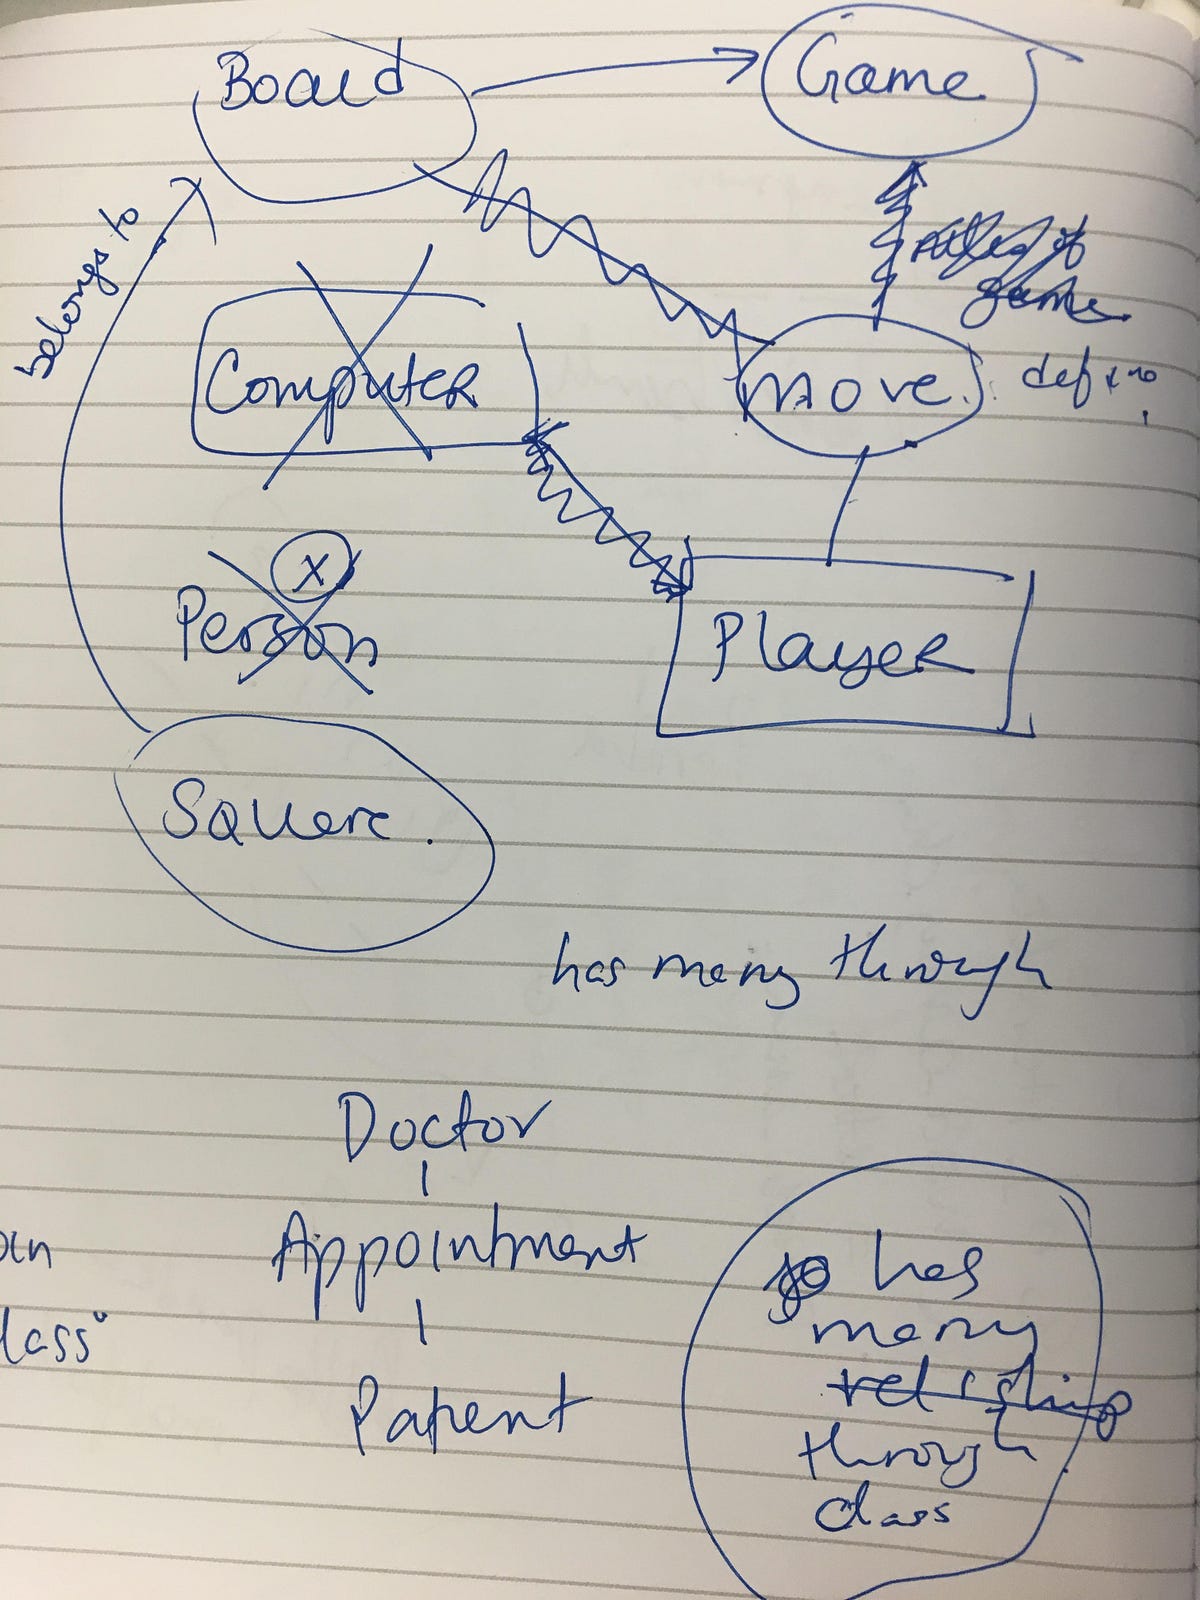 Board
Game
belongs to
rules of
game.
Computer
move
def
X
Person
Player
Square.
has many through
Doctor
Appointment
Patient
class"
has
many
through
class